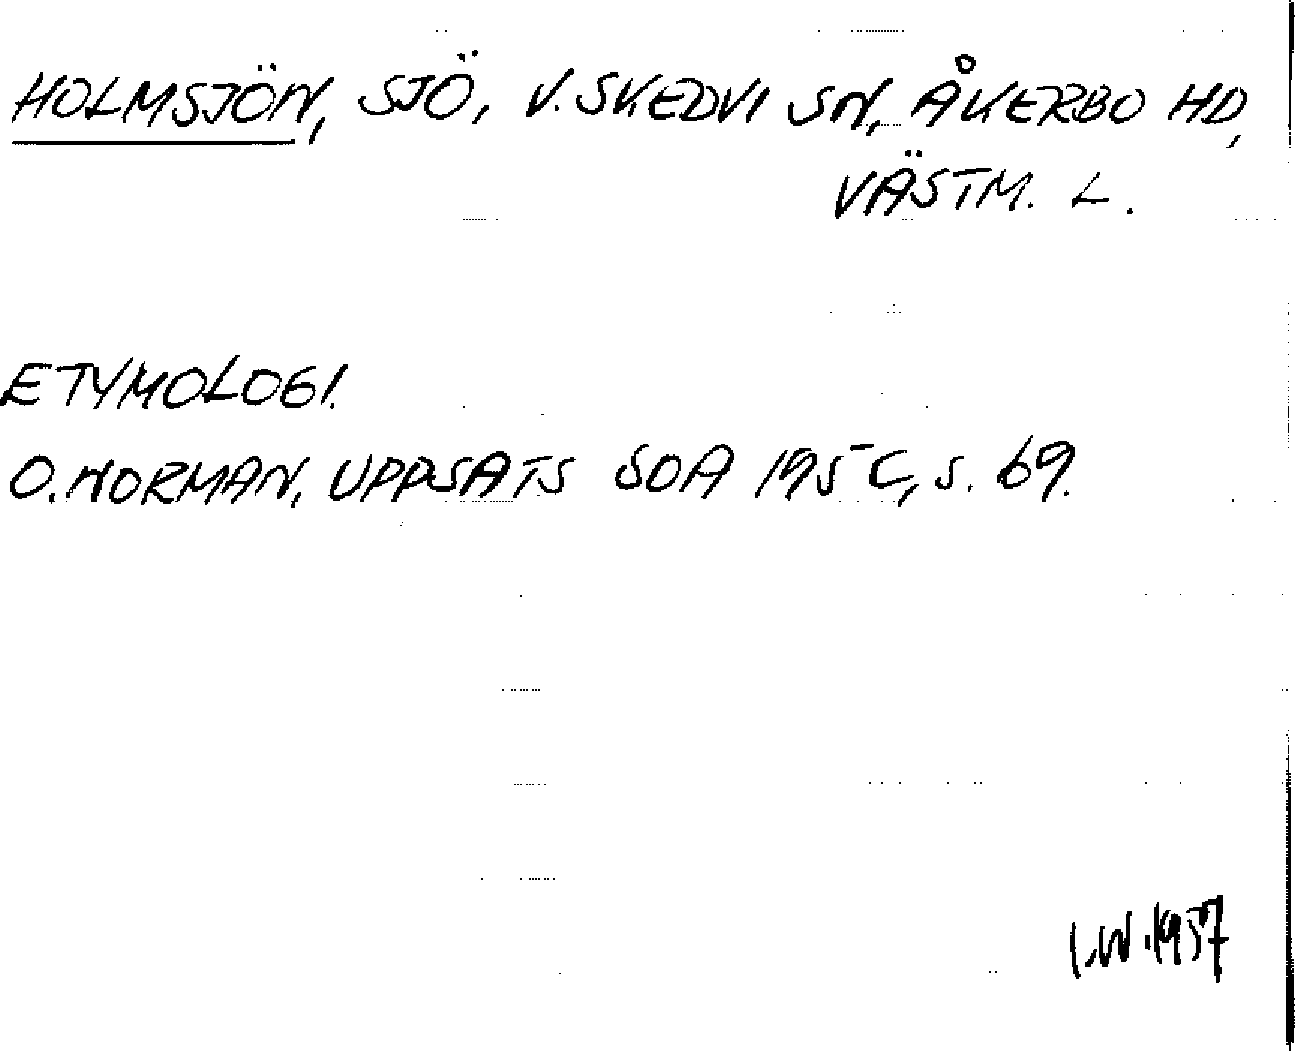 HOLMSJÖN, SJÖ, V. SKEDVI SN, ÅKERBO HD,
VÄSTM. L.
ETYMOLOGI.
O. NORMAN, UPPSATS SOA 195 C, S. 69.
I.W. 1957